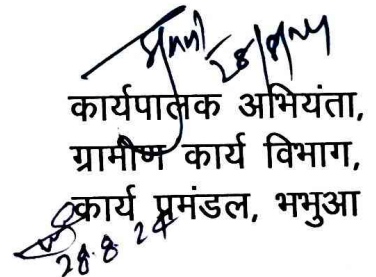 28/8/24
कार्यपालक अभियंता,
ग्रामीण कार्य विभाग,
कार्य प्रमंडल, भभुआ
28.8.24